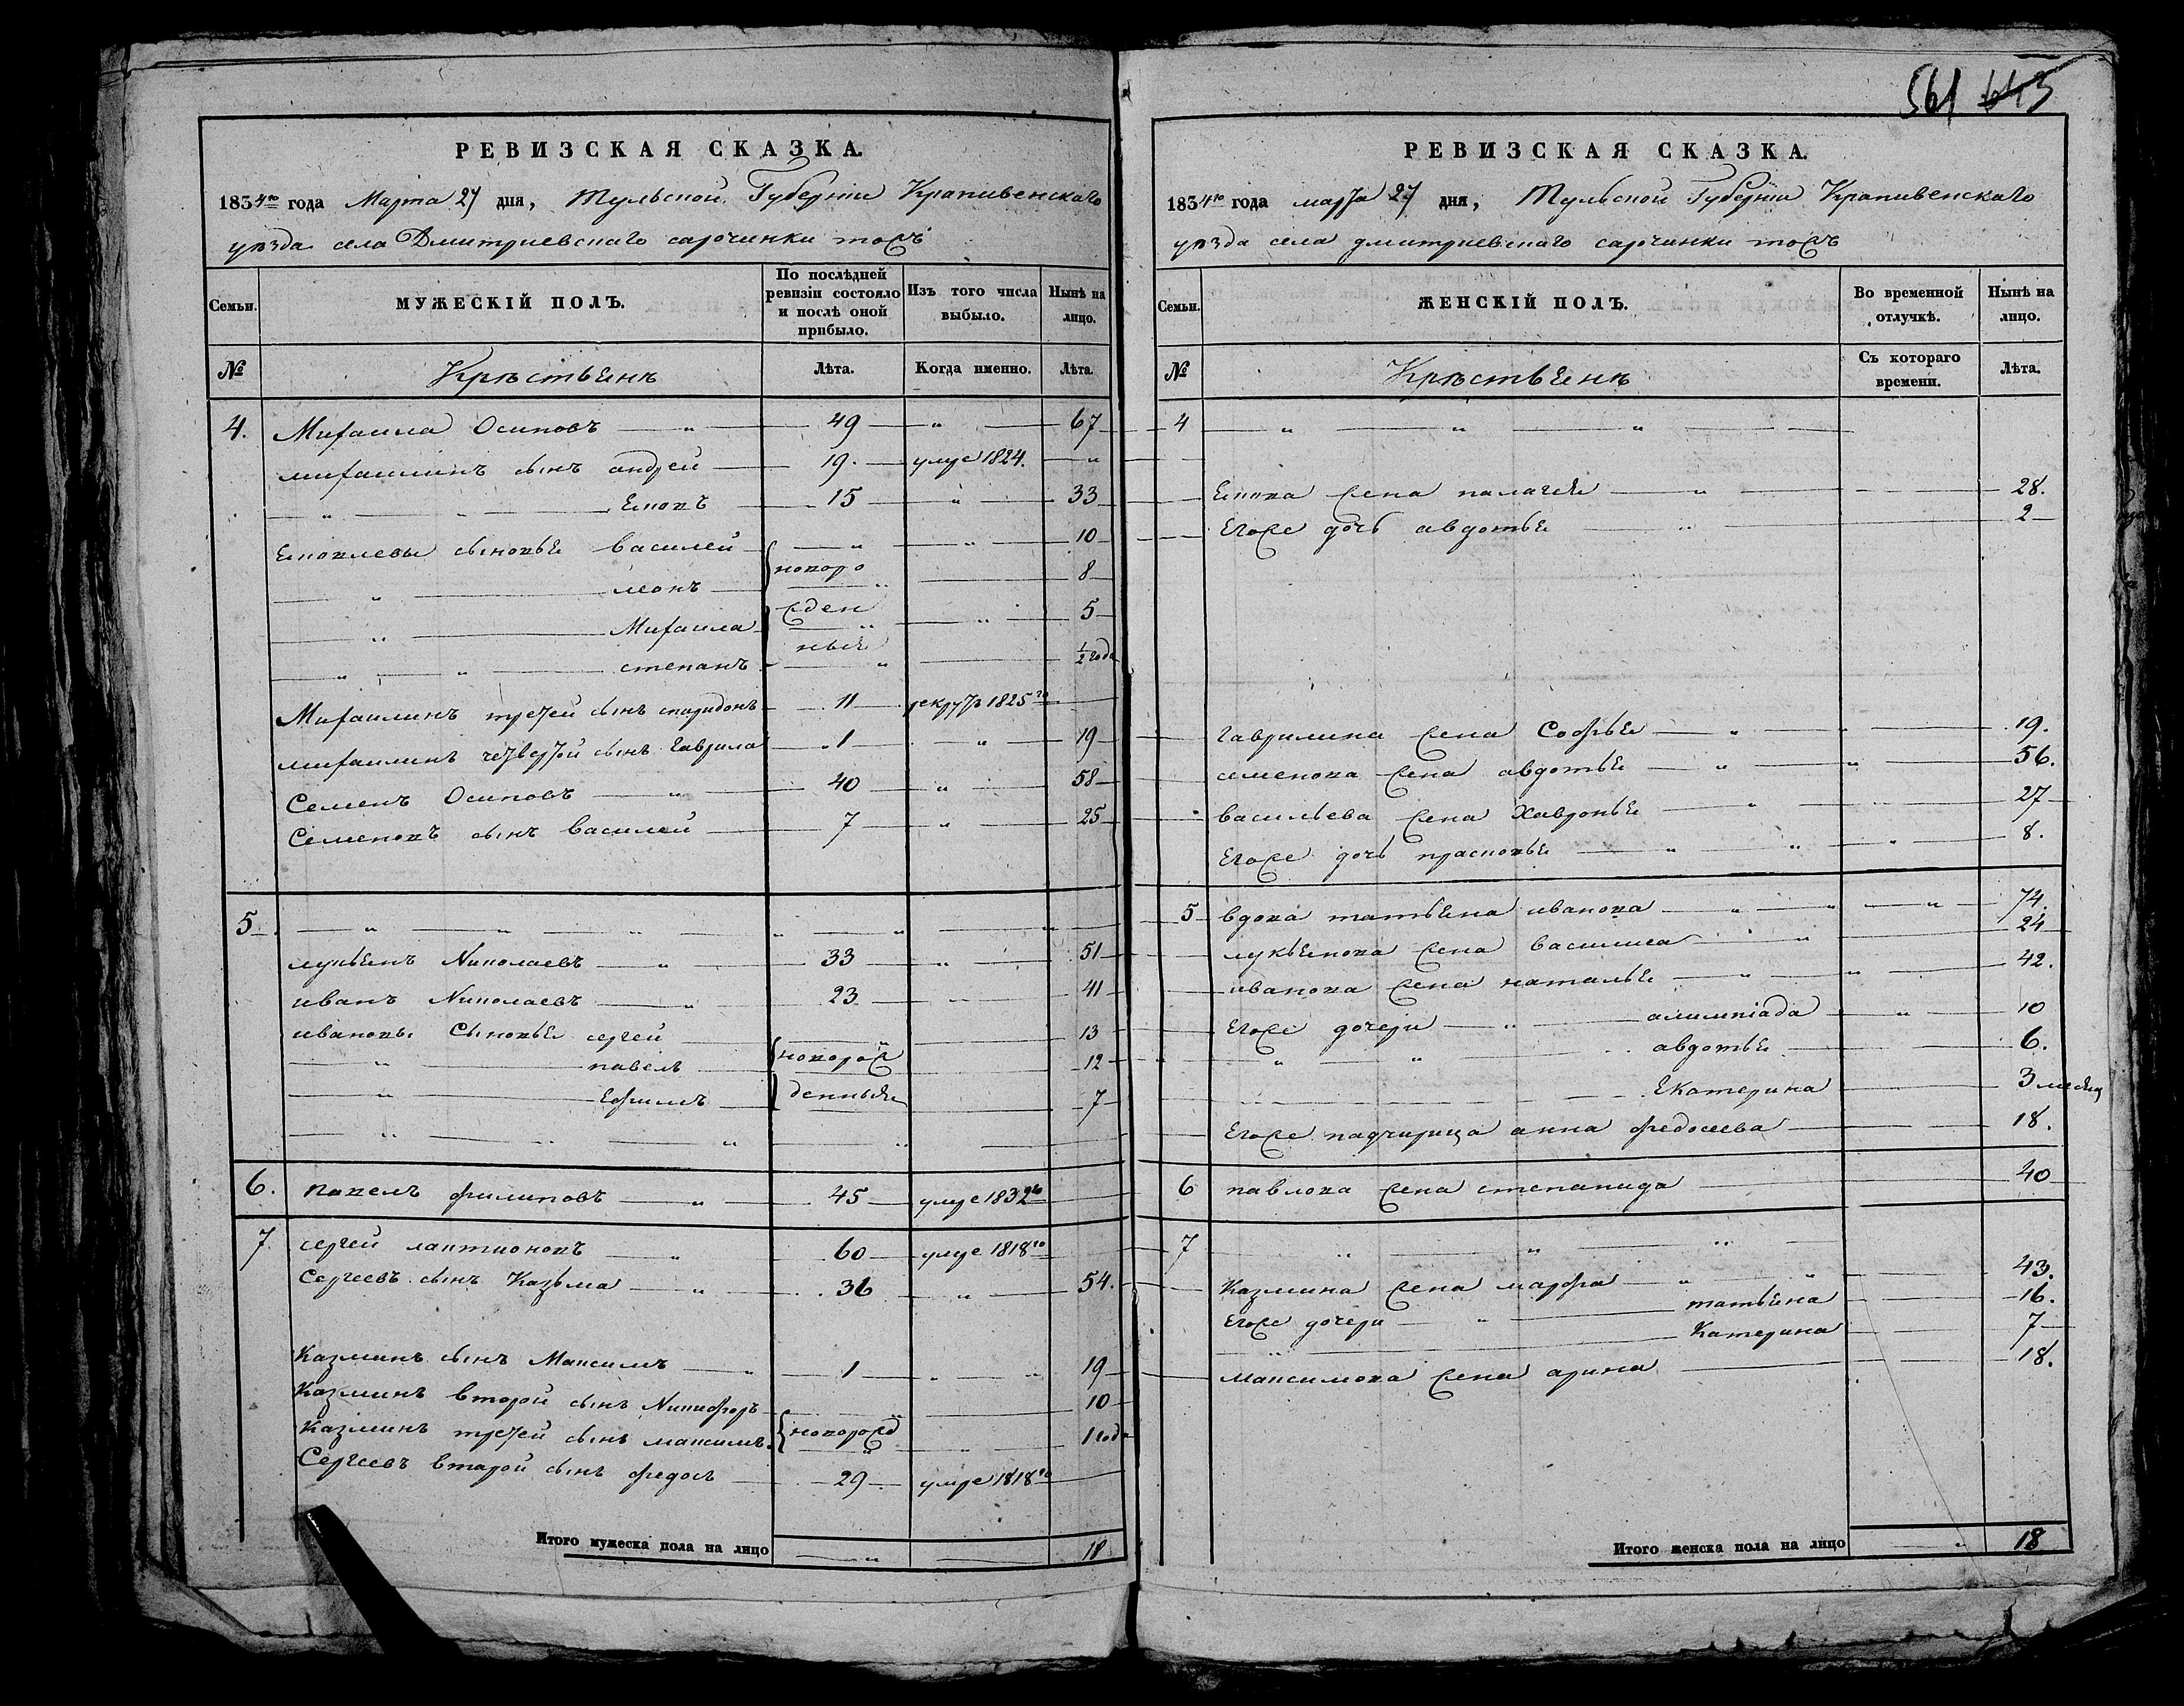 561 643
РЕВИЗСКАЯ СКАЗКА.
1834го года Марта 27 дня, Тульской Губерніи Крапивенскаго
уѣзда села Дмитриевскаго сарочинки тожъ
Семьи. МУЖЕСКІЙ ПОЛЪ. По послѣдней ревизіи состояло и послѣ оной прибыло. Изъ того числа выбыло. Нынѣ на лицо.
№ Крѣствѣнѣ Лѣта. Когда именно. Лѣта.
4. Михаила Осиповъ — „ — 49 — „ — 67
михаилинъ сынъ андрей — 19. — умре 1824. — „
„ — 15 — „ — 33
сыновье василей — „ — „ — 10
— „ — леонъ — „ — 8
— „ — Михаила — „ — „ — 5
— „ — „ — степанъ — „ — 1/2 года
{новоро
жден
ные
Михаилинъ третей сынъ спиридонъ — 11 — рекрутъ 1825го
михаилинъ четвертой сынъ Гаврила — 1 — „ — 19
Семенъ Осиповъ — „ — 40 — „ — 58
Семеновъ сынъ василей — 7 — „ — 25
5 — „ — „ — „ — „ — „
лукьенъ Николаевъ — „ — 33 — „ — 51
иванъ Николаевъ — „ — 23 — „ — 41
ивановы Сыновье сергей — „ — 13
— „ — павелъ — {новорож — 12
— „ — Ефимъ — денные — 7
— „ — „ — „ — „
6. павелъ филиповъ — „ — 45 — умре 1832го
7. сергей лактионовъ — „ — 60 — умре 1818го
Сергеевъ сынъ Казьма — „ — 36 — „ — 54.
Казминъ сынъ Максимъ — „ — 1 — „ — „ — 19
Казминъ второй сынъ Никифоръ — „ — 10
Казминъ третей сынъ максимъ. {новорожд — „ — 1 год
Сергеевъ второй сынъ федоръ — 29 — умре 1818го
Итого мужеска пола на лицо — „ — 18
РЕВИЗСКАЯ СКАЗКА.
1834го года марта 27 дня, Тульской Губерніи Крапивенскаго
уѣзда села дмитриевскаго сарочинки тожъ
Семьи. ЖЕНСКІЙ ПОЛЪ. Во временной отлучкѣ. Нынѣ на лицо.
№ Крѣствѣнѣ Съ котораго времени. Лѣта.
4 — „ — „ — „
жена палагее — „ — 28.
Егоже дочь авдотье — „ — 2
гаврилина жена Софье — „ — „ — 19.
семенова жена авдотье — „ — „ — 56.
васильева жена Хавронье — „ — „ — 27
Егоже дочь прасковье — „ — „ — „ — 8.
5 вдова татьена иванова — „ — „ — „ — 74.
лукьенова жена василиса — „ — 24
иванова жена наталье — „ — „ — 42.
Егоже дочери — „ — алимпіада — „ — 10
„ — „ — авдотье — 6.
Екатерина — 3 месец
Егоже падчирица анна федосеева — 18.
6 павлова жена степанида — 40
7 — „ — „ — „
Казмина жена марфа — „ — „ — 43.
Егоже дочери — „ — татьена — 16.
— „ — Катерина — 7
максимова жена арина — 18.
Итого женска пола на лицо — „ — 18